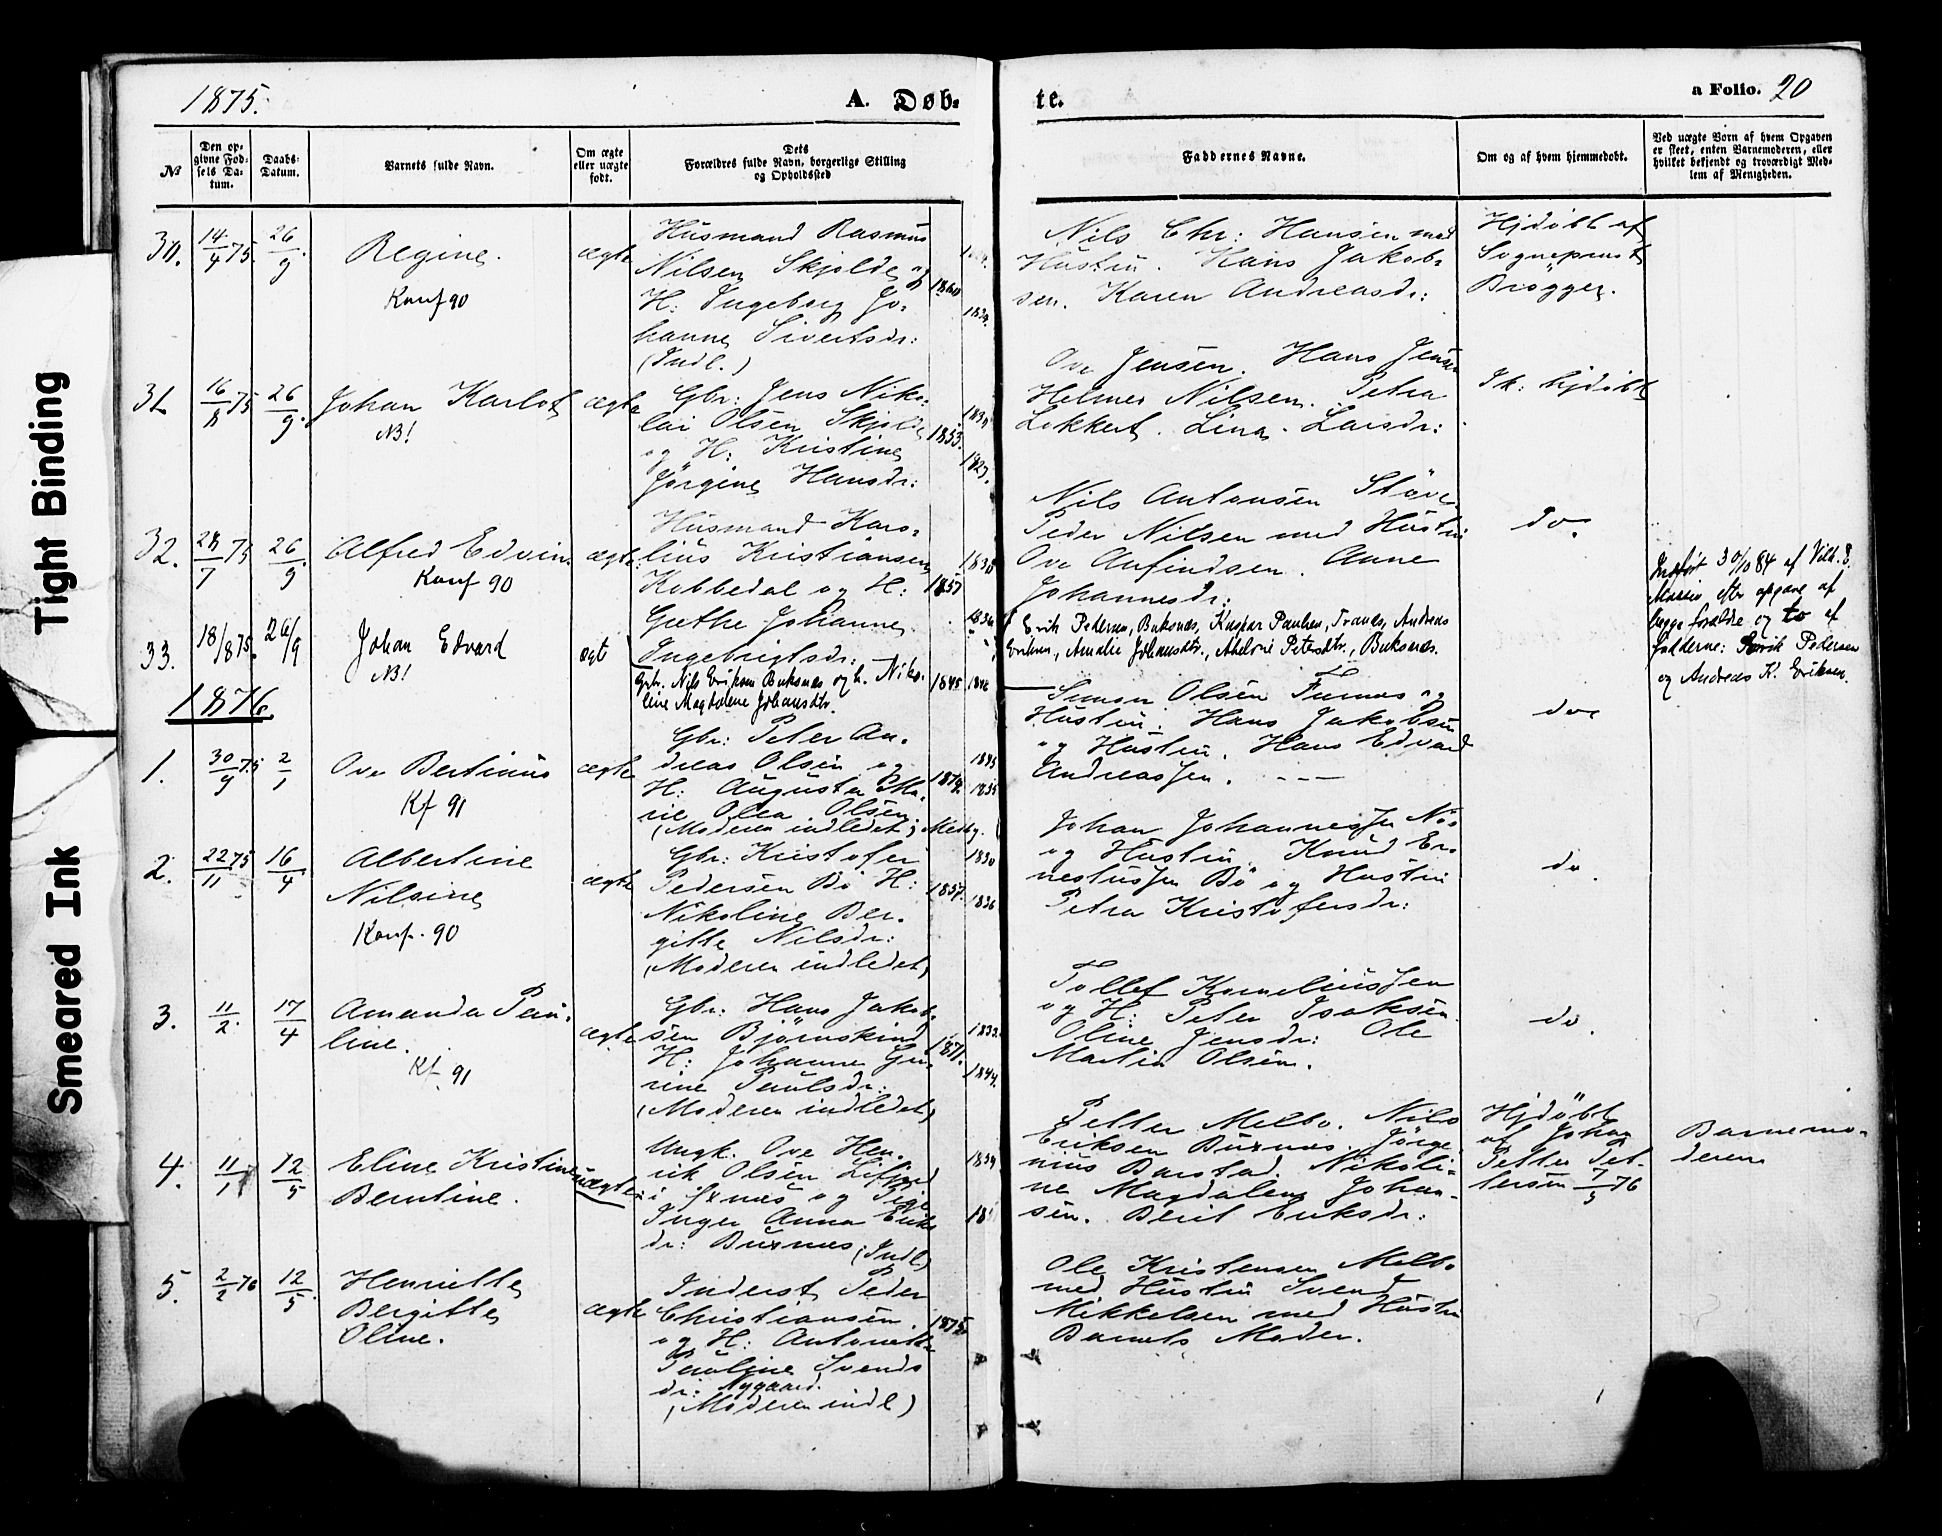 1875.
A. Døb-
te.
a Folio. 20
№
Den op-
givne Fød-
sels Da-
tum.
Daabs-
Datum.
Barnets fulde Navn.
Om ægte
eller uægte
født.
Dets
Forældres fulde Navn, borgerlige Stilling
og Opholdssted
Faddernes Navne.
Om og af hvem hjemmedøbt.
Ved uægte Børn af hvem Opgaven
er skeet, enten Barnemoderen, eller
hvilket bekjendt og troværdigt Med-
lem af Menigheden.
30.
14/4 75.
26/9
Regine.
Konf 90
ægte
Husmand Rasmus
Nilsen Skjolde og
H: Ingeborg Jo-
hanne Sivertsdr:
(Indl.)
1860
1834.
Nils Chr: Hansen med
Hustru. Hans Jakob-
sen. Karen Andreasdr:
Hjdøbt af
Sogneprest
Brøgger.
31
16/8 75
26/9.
Johan Karlot
NB!
ægte
Gbr: Jens Niko-
lai Olsen Skjolde
og H: Kristine
Jørgine Hansdr:
1853.
1827.
Ove Jensen. Hans Jensen
Helmer Nilsen. Petra
Lokkert. Lina Larsdr:
Ik: hjdøbt
32.
28/7 75
26/9
Alfred Edvin.
Konf 90
ægte
Husmand Karo-
lius Kristiansen
Kobbedal og H:
Grethe Johanne
Ingebrigtsdr:
1838
1857
1836
Nils Antonsen Støve
Peder Nilsen med Hustru
Ove Anfindsen. Anne
Johannesdr:
do.
33.
18/8 75.
26/9
Johan Edvard
NB!
ægt
Gbr. Nils Eriksen Buksnæs og h. Niko-
line Magdalene Johansdtr.
1845
1846
Erik Pedersen, Buksnæs, Kaspar Paulsen, Tranes, Andreas
Eriksen, Amalie Johansdtr., Abelone Petersdtr., Buksnæs.
Indført 30/10 84 af Vilh. P.
Mossis efter opgave af
begge forældre og to af
fadderne: Erik Pedersen
og Andreas K. Eriksen.
1876.
1.
30/9 75
2/1
Ove Bertinus
Kf 91
ægte
Gbr: Peter An-
dreas Olsen og
H: Augusta Ma-
rie Olea Olsen
(Moderen indledet; Medby.
1845
1874.
1835
Simon Olsen Furnes og
Hustru. Hans Jakobsen
og Hustru. Hans Edvard
Andreassen. ---
do
2.
22/11 75
16/4
Albertine
Nilsine
Konf. 90
ægte
Gbr: Kristofer
Pedersen Bø H:
Nikoline Ber-
gitte Nilsdr:
(Moderen indledet)
1830
1857.
1836
Johan Johannessen
og Hustru. Knud Er-
nestussen Bø og Hustru
Petra Kristofersdr:
do.
3.
11/2.
17/4
Amanda Pau-
line.
Kf 91
ægte
Gbr: Hans Jakob-
sen Bjørnskind
H: Johanne Gu-
rine Paulsdr:
(Moderen indledet)
1832.
1871.
1844.
Tollef Korneliussen
og H: Peter Isaksen
Oline Jensdr: Ole
Martin Olsen.
do.
4.
11/1
12/5
Eline Kristine
Berntine.
uægte
Ungk. Ove Hen-
rik Olsen Lifjord
i Ixnæs og Pige
Inger Anna Eriks-
dr: Buxnæs (Indl)
1839
Petter Melbo. Nils
Eriksen Buxnæs. Jørge-
nius Barstad. Nikoli-
ne Magdalene Johan-
sen. Berit Eriksdr:
Hjdøbt
af Johan
Petter Pet-
tersen 7/3 76
Barnemo-
deren
5.
2/2 76
12/5.
Henriette
Bergitte
Oline.
ægte
Inderst Peder
Christiansen.
og H: Antonette
Pauline Svends
dr: Nygaard.
(Moderen indl)
1875
Ole Kristensen Melbo
med Hustru Svend
Mikkelsen med Hustru
Barnets Moder.
Tight Binding
Smeared Ink